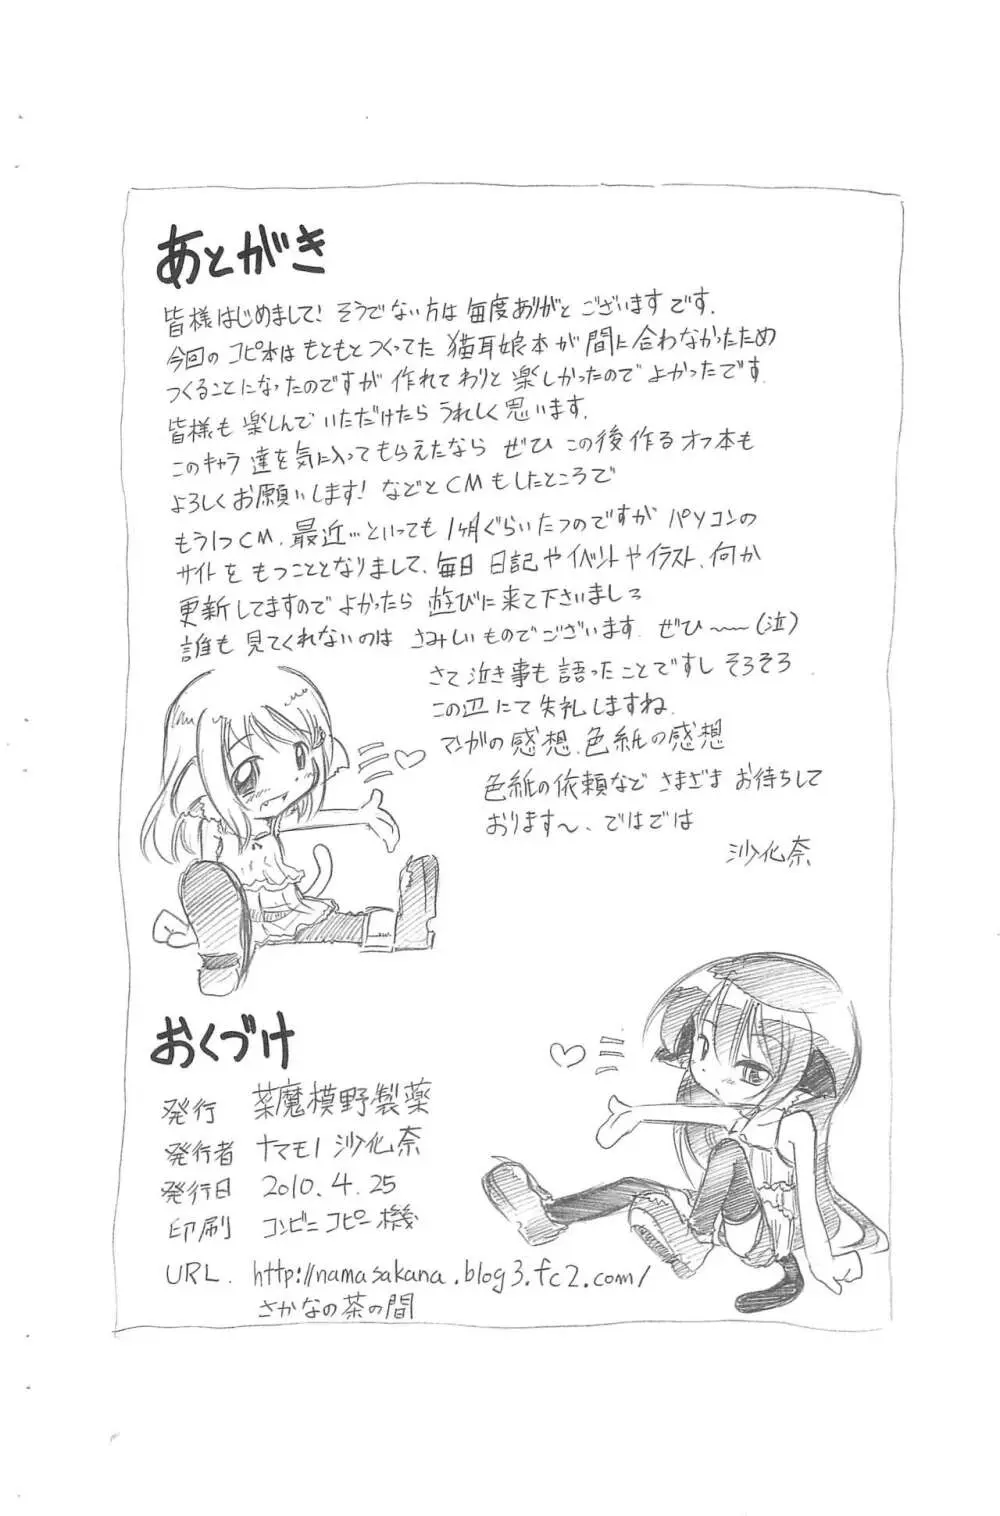 あとがき
皆様はじめまして！そうでない方は毎度ありがとございますです．
今回のコピ本はもともとつくってた猫耳娘本が間に合わなかったため
つくることになったのですが作れてわりと楽しかったのでよかったです．
皆様も楽しんでいただけたらうれしく思います．
このキャラ達を気に入ってもらえたならぜひこの後作るオフ本も
よろしくお願いします！などとCMもしたところで
もう1つCM、最近…といっても1ヶ月ぐらいたつのですがパソコンの
サイトをもつこととなりまして、毎日日記やイベントやイラスト、何か
更新してますのでよかったら遊びに来て下さいましろ
誰も見てくれないのはさみしいものでございます．ぜひ〜〜（泣）
さて泣き事も語ったことですしそろそろ
この辺にて失礼しますね．
マンガの感想、色紙の感想
色紙の依頼などさまざまお待ちして
おります〜、ではでは
沙化奈
おくづけ
発行 菜魔模野製薬
発行者 ナマモノ沙化奈
発行日 2010.4.25
印刷 コンビニコピー機
URL. http://namasakana.blog3.fc2.com/
さかなの茶の間